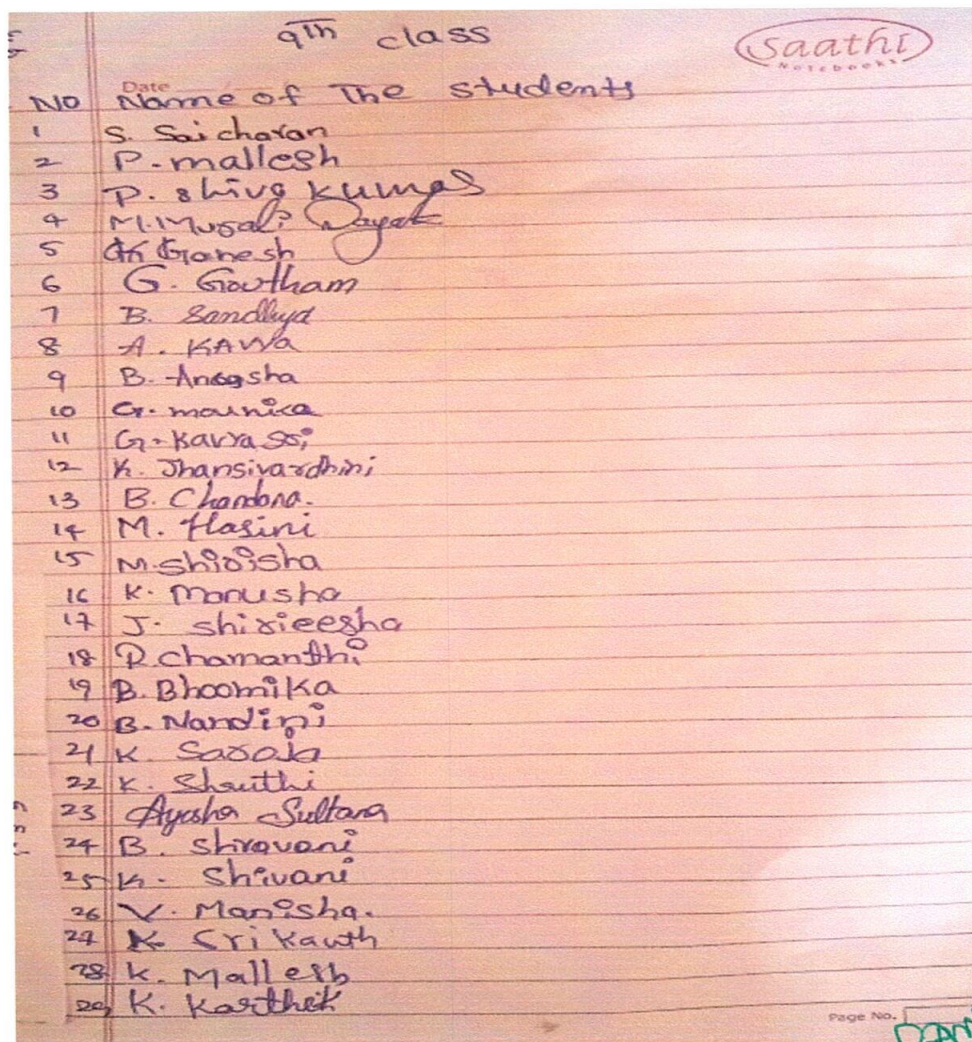 9th class
Saathi
Notebooks
Date
NO Name of The students
1 S. Saicharan
2 P. mallesh
3 P. shiva kumar
4 M. Murali Nayak
5 K Ganesh
6 G. Goutham
7 B. Sandhya
8 A. KAVYA
9 B. Anoosha
10 G. mounica
11 G. Kavya sri
12 K. Jhansivardhini
13 B. Chandana.
14 M. Hasini
15 M. shirisha
16 K. Manusha
17 J. shirieesha
18 P. Chamanthi
19 B. Bhoomika
20 B. Nandini
21 K. Saroja
22 K. Shruthi
23 Ayasha Sultana
24 B. Shiravani
25 K. Shivani
26 V. Manisha.
27 K Sri Kanth
28 K. Mallesh
29 K. Karthik
Page No.